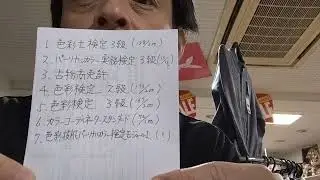 1. 色彩士検定 3級 (
2. パーソナルカラー実務検定 3級
3. 古物商免許
4. 色彩検定 2級 (
5. 色彩検定 3級 (
6. カラーコーディネータースタンダード (
7. 色彩技能パーソナルカラー検定モジュール (1)